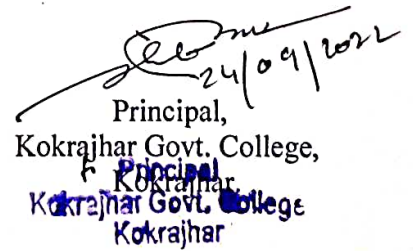 24/09/2022
Principal,
Kokrajhar Govt. College,
Kokrajhar.
Principal
Kokrajhar Govt. College
Kokrajhar